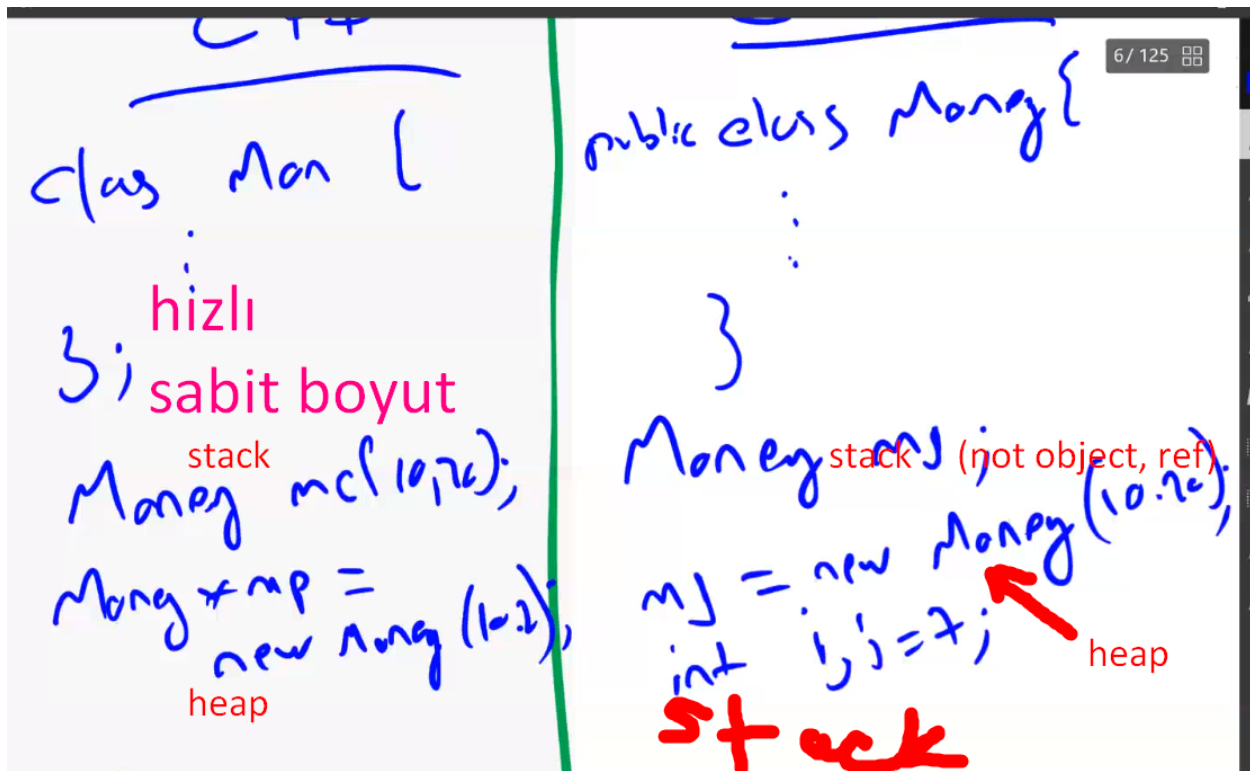 C++
6 / 125
class Mon {
hizlı
};
sabit boyut
stack
Money mc(10,20);
Money *mp =
new Money (10.2);
heap
public class Money{
}
Money mj;
stack (not object, ref)
mj = new Money (10.20);
heap
int i, j = 7;
stack